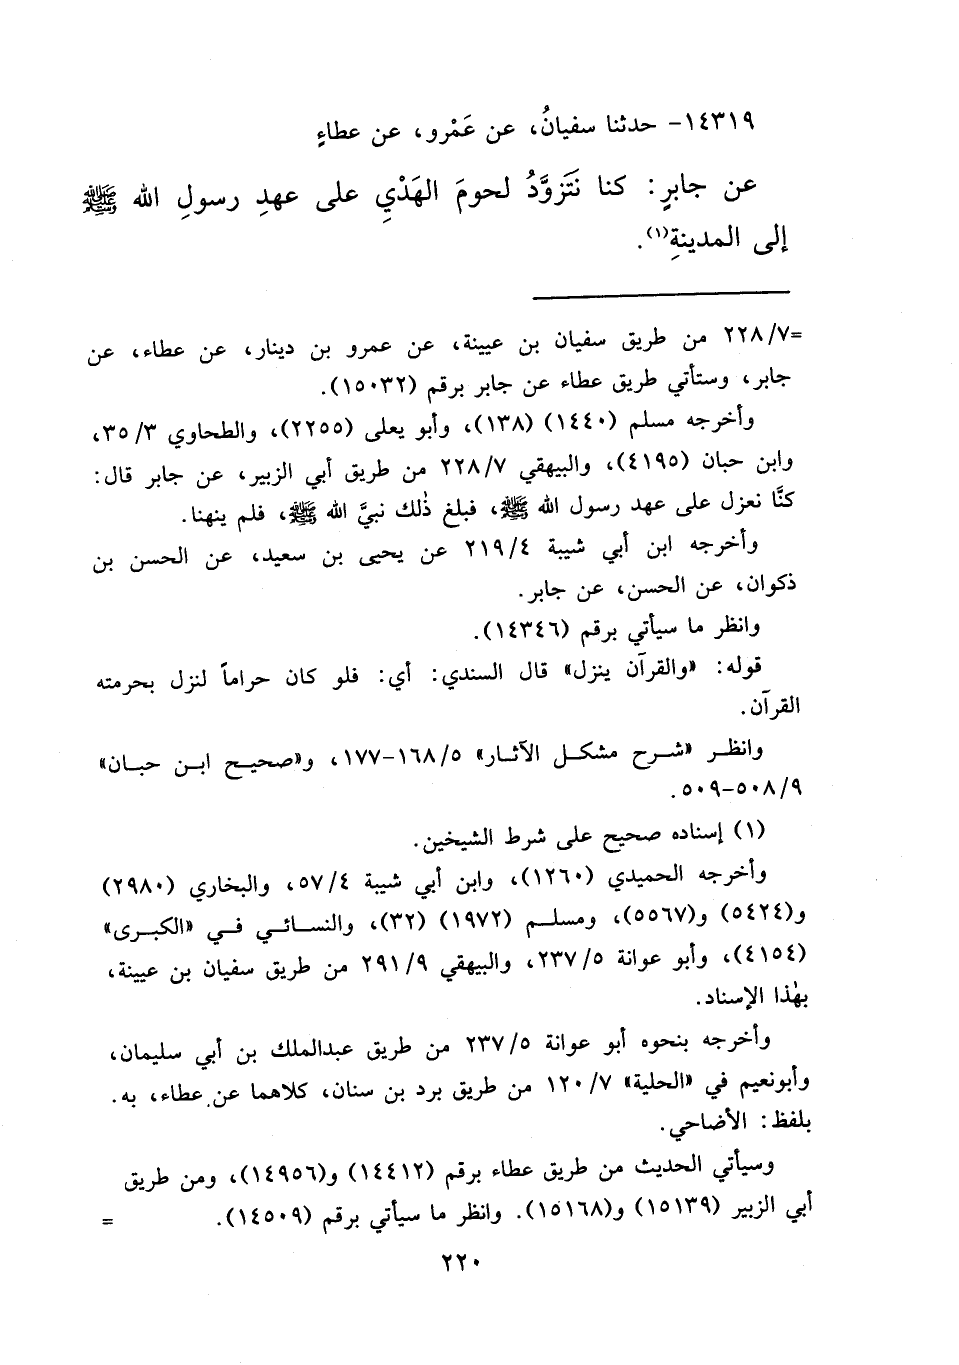 ١٤٣١٩- حدثنا سفيانُ، عن عَمْرو، عن عطاءٍ
عن جابرٍ: كنا نَتَزوَّدُ لحومَ الهَدْيِ على عهدِ رسولِ الله ﷺ
إلى المدينةِ(١).
=٢٢٨/٧ من طريق سفيان بن عيينة، عن عمرو بن دينار، عن عطاء، عن
جابر، وستأتي طريق عطاء عن جابر برقم (١٥٠٣٢).
وأخرجه مسلم (١٤٤٠) (١٣٨)، وأبو يعلى (٢٢٥٥)، والطحاوي ٣٥/٣،
وابن حبان (٤١٩٥)، والبيهقي ٢٢٨/٧ من طريق أبي الزبير، عن جابر قال:
كنَّا نعزل على عهد رسول الله ﷺ، فبلغ ذٰلك نبيَّ الله ﷺ، فلم ينهنا.
وأخرجه ابن أبي شيبة ٢١٩/٤ عن يحيى بن سعيد، عن الحسن بن
ذكوان، عن الحسن، عن جابر.
وانظر ما سيأتي برقم (١٤٣٤٦).
قوله: «والقرآن ينزل» قال السندي: أي: فلو كان حراماً لنزل بحرمته
القرآن.
وانظر «شرح مشكل الآثار» ١٦٨/٥-١٧٧، و«صحيح ابن حبان»
٥٠٨/٩-٥٠٩.
(١) إسناده صحيح على شرط الشيخين.
وأخرجه الحميدي (١٢٦٠)، وابن أبي شيبة ٥٧/٤، والبخاري (٢٩٨٠)
و(٥٤٢٤) و(٥٥٦٧)، ومسلم (١٩٧٢) (٣٢)، والنسائي في «الكبرى»
(٤١٥٤)، وأبو عوانة ٢٣٧/٥، والبيهقي ٢٩١/٩ من طريق سفيان بن عيينة،
بهٰذا الإسناد.
وأخرجه بنحوه أبو عوانة ٢٣٧/٥ من طريق عبدالملك بن أبي سليمان،
وأبونعيم في «الحلية» ١٢٠/٧ من طريق برد بن سنان، كلاهما عن عطاء، به.
بلفظ: الأضاحي.
وسيأتي الحديث من طريق عطاء برقم (١٤٤١٢) و(١٤٩٥٦)، ومن طريق
أبي الزبير (١٥١٣٩) و(١٥١٦٨). وانظر ما سيأتي برقم (١٤٥٠٩). =
٢٢٠